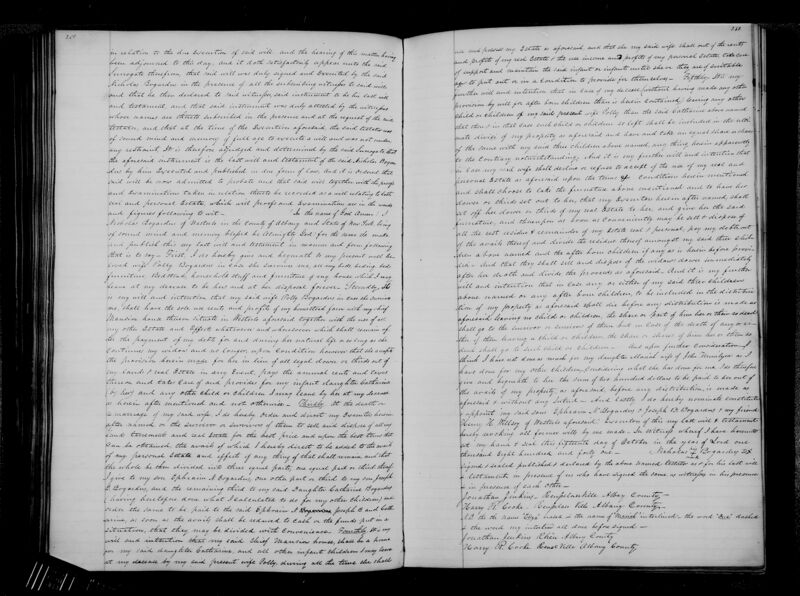 in relation to the due Execution of said will and the hearing of this matter having
been adjourned to this day, and it doth satisfactorily appear unto the said
Surrogate therefrom, that said will was duly signed and Executed by the said
Nicholas Bogardus in the presence of all the subscribing witnesses to said will
and that he then declared to said witnesses said instrument to be his last will
and testament, and that said instrument was duly attested by the witnesses
whose names are thereto subscribed in the presence and at the request of the said
testator, and that at the time of the Execution aforesaid the said testator was
of sound mind and memory of full age to execute a will and was not under
any restraint It is therefore adjudged and determined by the said Surrogate that
the aforesaid instrument is the last will and testament of the said Nicholas Bogar
dus by him Executed and published in due form of law, and it is ordered that
said will be now admitted to probate and that said will together with the proofs
and Examinations taken in relation thereto be recorded as a will relating to both
real and personal Estate, which will proofs and Examinations are in the words
and figures following to wit — In the name of God Amen. I
Nicholas Bogardus of Westerlo in the County of Albany and State of New York being
of sound mind and memory blessed be Almighty God for the same do make
and publish this my last will and testament in manner and form following
that is to say. First, I do hereby give and bequeath to my present well be
loved wife Polly Bogardus in case she survives me, all my beds beding, bed
furniture Bedsteads, household stuff and furniture of my house which I may
leave at my decease to be hers and at her disposal forever. Secondly, It
is my will and intention that my said wife Polly Bogardus in case she survives
me, shall have the sole use rents and profits of my homested farm with my chief
Mansion house thereon situate in Westerlo aforesaid together with the use of all
my other Estate and Effects whatsoever and wheresoever which shall remain af
ter the payment of my debts for and during her natural life as long as she
continues my widow and no longer, upon Condition however that she accepts
the provision herein made for her in lieu of all legal dower or thirds out of
my lands & real Estate in any Event, pays the annual rents and taxes
thereon and take Care of and provides for my infant daughter Catharine
by her and any other child or children I may leave by her at my decease
as herein after mentioned and not otherwise — Thirdly At the death or
re marriage of my said wife, I do hereby Order and direct my Executors herein
after named or the survivor or survivors of them to sell and dispose of all my
lands tenements and real Estate for the best price and upon the best terms that
Can be obtained the avails of which I hereby direct to be added to the avails
of my personal Estate and effects if any thing of that shall remain and that
the whole be then divided into three equal parts, one equal part or third thereof
I give to my son Ephraim N Bogardus, one other part or third to my son Joseph
B Bogardus, and the remaining third to my said Daughter Catharine Bogardus
(having heretofore done what I calculated to do for my other Children) and
order the same to be paid to the said Ephraim N Bogardus, Joseph B and Cath
arine, as soon as the avails shall be reduced to Cash or the funds put in a
situation, that they may be divided with Convenience. Fourthly It is my
will and intention that my said Chief Mansion house, shall be a home
for my said daughter Catharine, and all other infant children I may leave
at my decease by my said present wife Polly, during all the time she shall
use and possess my Estate as aforesaid and that she my said wife shall out of the rents
and profits of my real Estate & the use income and profits of my personal Estate take care
of support and maintain the said infant or infants until she or they are of suitable
age to put out or in a Condition to provide for themselves — Fifthly It is my
further will and intention that in Case of my decease (without having made any other
provision by will for after born children than is herein contained) leaving any other
child or children of my said present wife Polly than the said Catharine above named
that then & in that case such child or children so left shall be included in the ulti
mate divide of my property as aforesaid and have and take an equal share or shares
of the same with my said three children above named, any thing herein apparently
to the Contrary notwithstanding, And it is my further will and intention that
in Case my said wife shall decline or refuse to accept of the use of my real and
personal Estate as aforesaid upon the terms & Conditions herein mentioned
and shall choose to take the furniture above mentioned and to have her
dower or thirds set out to her, that my Executors herein after named, shall
set off her dower or thirds of my real Estate to her, and give her the said
furniture, and thereupon as soon as Conveniently may be sell & dispose of
all the rest residue & remainder of my Estate real & personal, pay my debts out
of the avails thereof and divide the residue thereof amongst my said three child-
ren above named and the after born children if any as is herein before provi-
ded — And that they shall sell and dispose of the widows dower immediately
after her death and divide the proceeds as aforesaid. And it is my further
will and intention that in Case any or either of my said three children
above named or any after born children, to be included in the distribu
tion of my property as aforesaid shall die before any distribution is made as
aforesaid (leaving no child or children, the share or part of him her or them so dead)
shall go to the survivor or survivors of them but in Case of the death of any or ei-
ther of them leaving a child or children, the share or shares of him her or them so
dead shall go to such child or children — But upon further Consideration I
think I have not done as much for my daughter Maria wife of John Fimelyou as I
have done for my other children, Considering what she has done for me I do therefore
give and bequeath to her the sum of two hundred dollars to be paid to her out of
the avails of my property as aforesaid before any distribution is made as
aforesaid & without any interest — And lastly I do hereby nominate constitute
& appoint my said sons Ephraim N. Bogardus & Joseph B. Bogardus & my friend
Henry H. Willsey of Westerlo aforesaid Executors of this my last will & testament
hereby revoking all former wills by me made. In witness whereof I have hereunto
set my hand & seal this fifteenth day of October in the year of our Lord one
thousand Eight hundred and forty one — Nicholas Bogardus
signed & sealed published & declared by the above named testator as & for his last will
& testament in presence of us who have signed the same as witnesses in his presence
& in presence of each other —
Jonathan Jenkins, Rensselaerville Albany County —
Harry R. Cooke. Rensselaerville Albany County —
Jonathan Jenkins Albany County
Harry R. Cooke Albany County